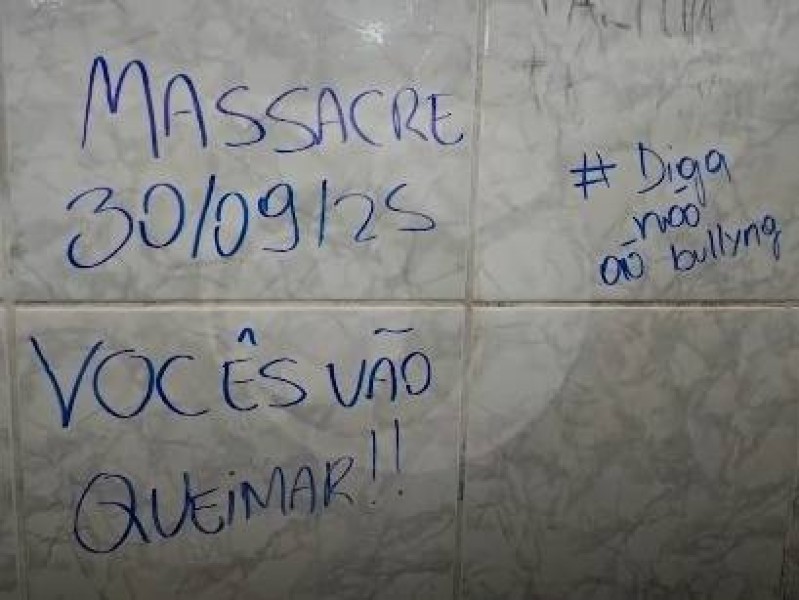 MASSACRE
30/09/25
VOCÊS VÃO
QUEIMAR!!
# Diga
não
ao bullyng